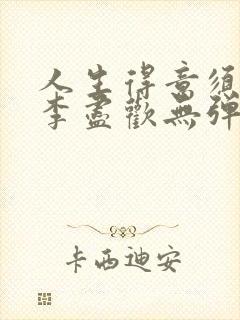 人生得意须
李盡歡無弹
卡西迪安